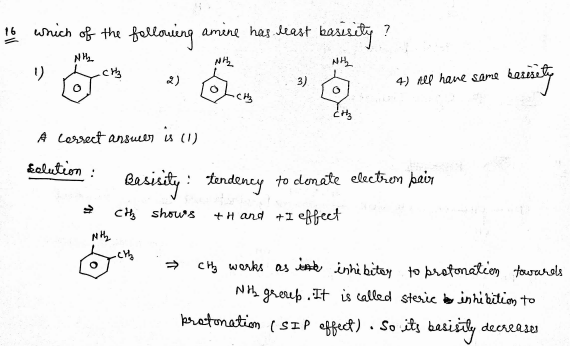 16 which of the following amine has least basisity ?
1) NH2 CH3 2) NH2 CH3 3) NH2 CH3 4) All have same basisety
A Correct answer is (1)
Solution : Basisity : tendency to donate electron pair
⇒ CH3 shows +H and +I effect
NH2 CH3 ⇒ CH3 works as inhibitor to protonation towards
NH2 group. It is called steric inhibition to
protonation (SIP effect). So its basisity decreases